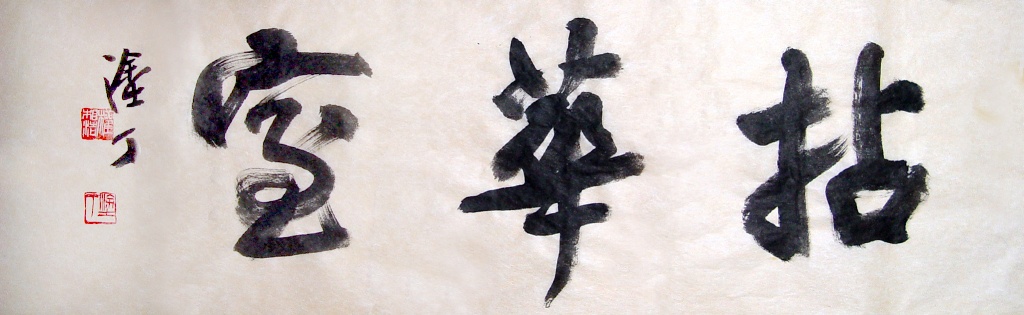 拈華室
塗丁